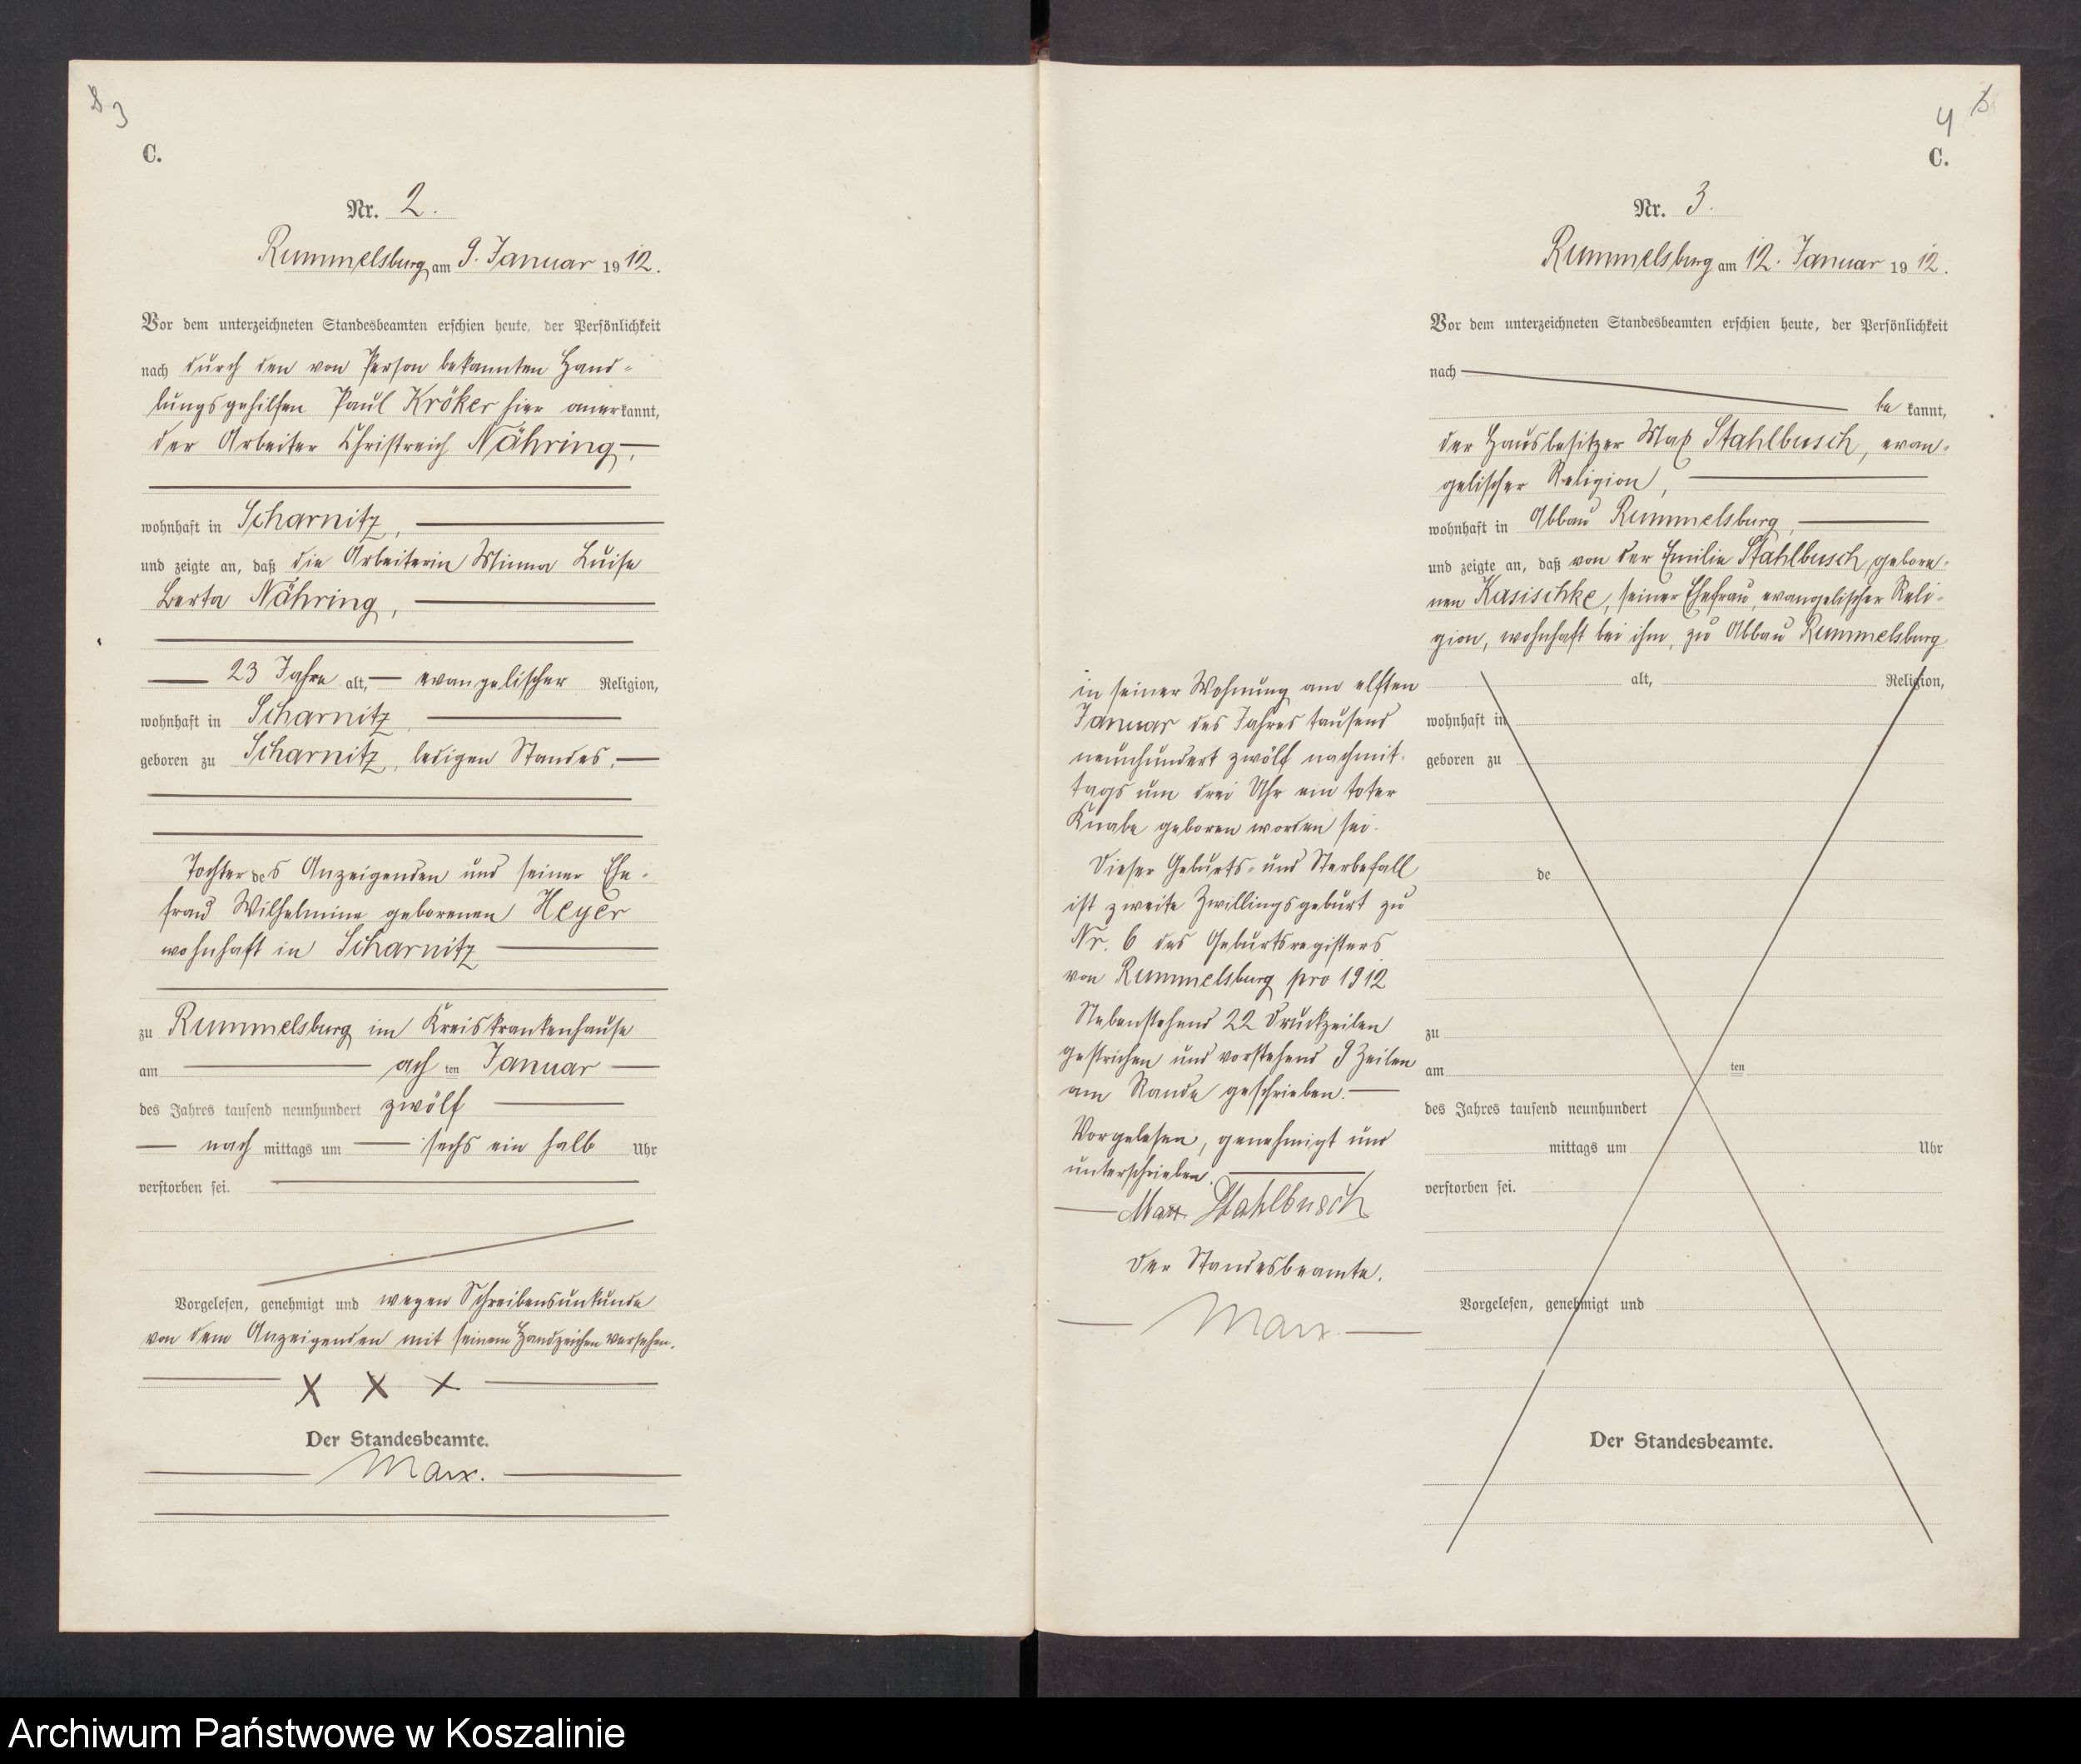 8 3
C.
Nr. 2.
Rummelsburg am 9. Januar 1912.
Vor dem unterzeichneten Standesbeamten erschien heute, der Persönlichkeit
nach durch den von Person bekannten Hand-
lungsgehilfen Paul Kröker hier anerkannt,
der Arbeiter Christreich Nähring,
wohnhaft in Scharnitz,
und zeigte an, daß die Arbeiterin Minna Luise
Berta Nähring,
23 Jahre alt, evangelischer Religion,
wohnhaft in Scharnitz
geboren zu Scharnitz, ledigen Standes,
Tochter des Anzeigenden und seiner Ehe-
frau Wilhelmine geborenen Heyer
wohnhaft in Scharnitz
zu Rummelsburg im Kreiskrankenhause
am achten Januar
des Jahres tausend neunhundert zwölf
nachmittags um sechs ein halb Uhr
verstorben sei.
Vorgelesen, genehmigt und wegen Schreibensunkunde
von dem Anzeigenden mit seinem Handzeichen versehen.
X X X
Der Standesbeamte.
Marx.
4
C.
Nr. 3.
Rummelsburg am 12. Januar 1912.
Vor dem unterzeichneten Standesbeamten erschien heute, der Persönlichkeit
nach
be kannt,
der Hausbesitzer Max Stahlbusch, evan-
gelischer Religion,
wohnhaft in Abbau Rummelsburg,
und zeigte an, daß von der Emilie Stahlbusch gebore-
nen Kasischke, seiner Ehefrau, evangelischer Reli-
gion, wohnhaft bei ihm, zu Abbau Rummelsburg
in seiner Wohnung am elften
Januar des Jahres tausend
neunhundert zwölf nachmit-
tags um drei Uhr ein toter
Knabe geboren worden sei.
Dieser Geburts- und Sterbefall
ist zweite Zwillingsgeburt zu
Nr. 6 des Geburtsregisters
von Rummelsburg pro 1912
Nebenstehend 22 Druckzeilen
gestrichen und vorstehend 9 Zeilen
am Rande geschrieben.
Vorgelesen, genehmigt und
unterschrieben.
Max Stahlbusch
Der Standesbeamte.
Marx.
alt, Religion,
wohnhaft in
geboren zu
de
zu
am ten
des Jahres tausend neunhundert
mittags um Uhr
verstorben sei.
Vorgelesen, genehmigt und
Der Standesbeamte.
Archiwum Państwowe w Koszalinie